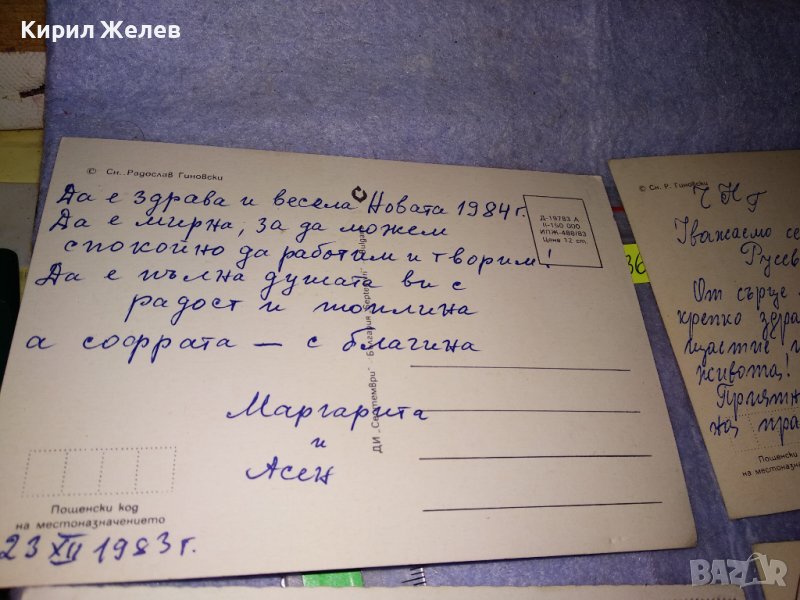 Кирил Желев
© Сн. Радослав Гиновски
Да е здрава и весела Новата 1984 г.
Да е мирна, за да можем
спокойно да работим и творим!
Да е пълна душата ви с
радост и топлина
а софрата – с благина
Маргарита
и
Асен
Д-19783 А
II-150 000
ИПЖ-486/83
Цена 12 ст.
ДИ „Септември"
Пощенски код
на местоназначението
23 XII 1983 г.
36
© Сн. Р. Гиновски
Ч Н Г
Уважаемо се
Русев
От сърце
крепко здра
щастие и
живота!
Приятн
на пра
Пощенски
на местоназн
BAZAR